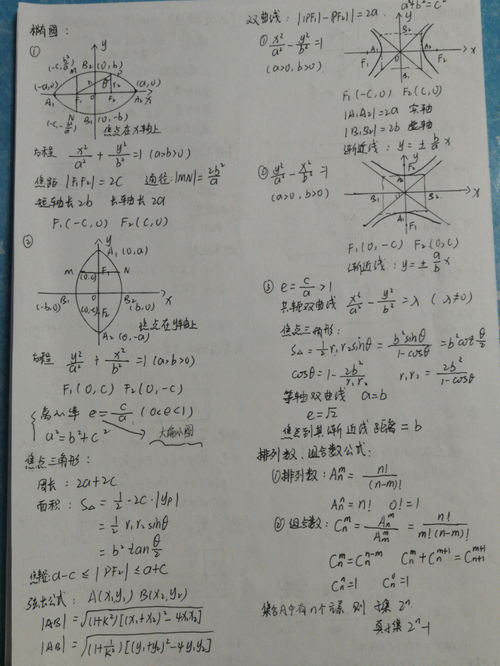 椭圆：
①
(-c, b²/a)
y
B₂ (0,b)
M
P
(-a,0)
(a,0)
A₁
F₁
0
F₂
A₂
x
(-c,-b²/a)
N
B₁ (0,-b)
焦点在x轴上
方程 x²/a² + y²/b² =1 (a>b>0)
焦距 |F₁F₂|=2C 通径:|MN|=2b²/a
短轴长2b 长轴长2a
F₁(-C,0) F₂(C,0)
②
y
A₁ (0,a)
M
(0,c)
F₁
N
(-b,0)
B₁
0
B₂
(b,0)
x
(0,-c)
F₂
A₂
(0,-a)
焦点在y轴上
方程 y²/a² + x²/b² =1 (a>b>0)
F₁(0,C) F₂(0,-C)
离心率 e=c/a (0<e<1)
a²=b²+c²
大扁小圆
焦点三角形：
周长：2a+2C
面积：S△=1/2·2C·|yp|
=1/2 r₁r₂sinθ
=b²tanθ/2
焦半径:a-c≤|PF₂|≤a+c
弦长公式：A(x₁,y₁) B(x₂,y₂)
|AB|=√(1+k²)[(x₁+x₂)²-4x₁x₂]
|AB|=√(1+1/k²)[(y₁+y₂)²-4y₁y₂]
双曲线：||PF₁|-|PF₂||=2a.
a²+b²=c²
① x²/a² - y²/b² =1
(a>0,b>0)
A₁
B₂
A₂
F₁
F₂
B₁
F₁(-C,0) F₂(C,0)
|A₁A₂|=2a 实轴
|B₁B₂|=2b 虚轴
渐近线：y=±b/a x
② y²/a² - x²/b² =1
(a>0,b>0)
F₂
A₂
B₁
B₂
A₁
F₁
F₁(0,-C) F₂(0,C)
渐近线：y=±a/b x
③ e=c/a>1
共轭双曲线 x²/a² - y²/b² =λ (λ≠0)
焦点三角形：
S△=1/2 r₁r₂sinθ=b²sinθ/1-cosθ=b²cotθ/2
cosθ=1-2b²/r₁r₂ r₁r₂=2b²/1-cosθ
等轴双曲线 a=b
e=√2
焦点到其渐近线距离=b
排列数、组合数公式：
①排列数：Aₙᵐ=n!/(n-m)!
Aₙⁿ=n! 0!=1
②组合数：Cₙᵐ=Aₙᵐ/Aₘᵐ=n!/m!(n-m)!
Cₙᵐ=Cₙⁿ⁻ᵐ Cₙᵐ+Cₙᵐ⁺¹=Cₙ₊₁ᵐ⁺¹
Cₙⁿ=1 Cₙ⁰=1
集合A中有n个元素 则 子集 2ⁿ
真子集 2ⁿ-1